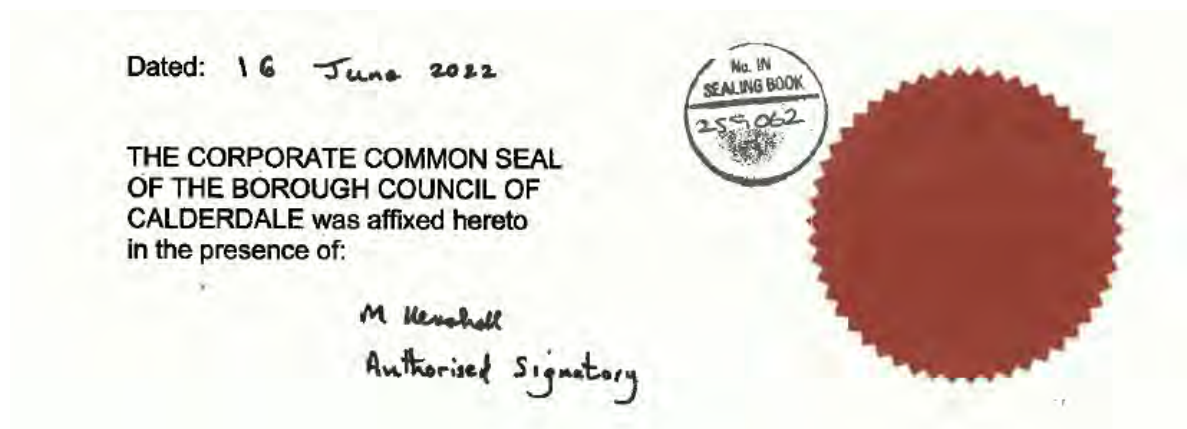 Dated: 16 June 2022
No. IN
SEALING BOOK
259062
THE CORPORATE COMMON SEAL
OF THE BOROUGH COUNCIL OF
CALDERDALE was affixed hereto
in the presence of:
M
Authorised Signatory